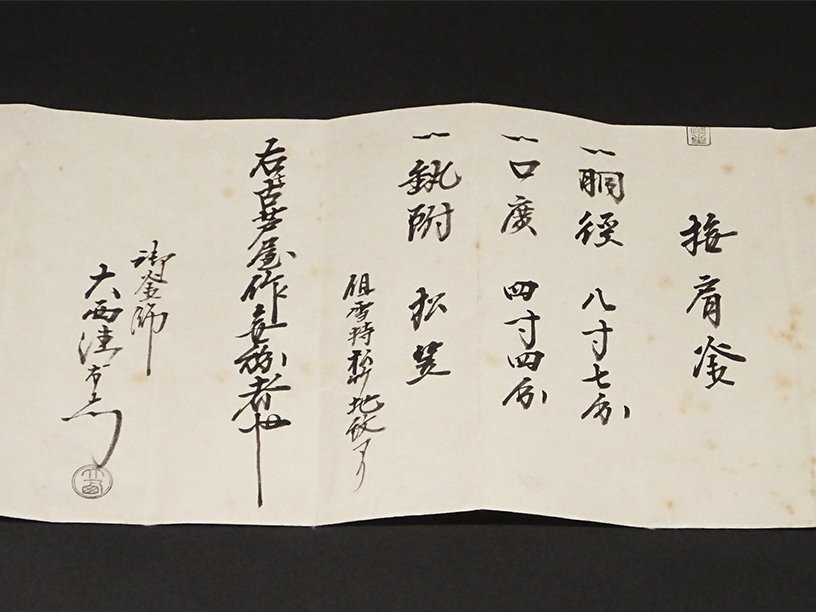 撫肩釜
一胴径 八寸七分
一口廣 四寸四分
一執附 松笠
但霰持松竹地紋アリ
右古芦屋作無紛者也
御釜師
大西清右衛門